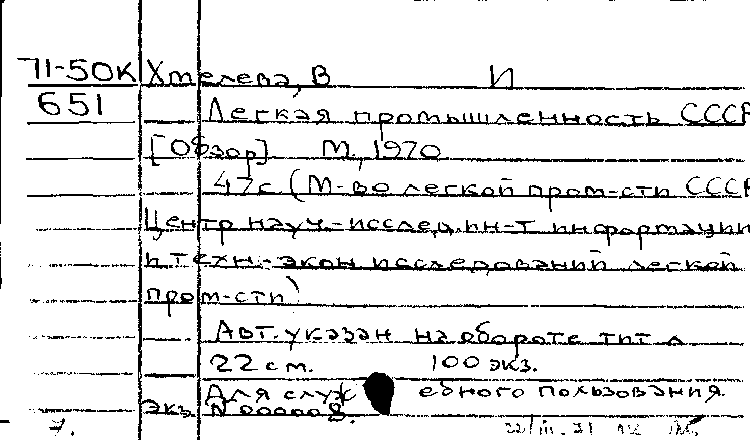 71-50К Хмелева, В И
651 Легкая промышленность СССР
[Обзор] М., 1970
47с (М-во легкой пром-сти СССР
Центр науч.-исслед. ин-т информации
и техн.-экон исследований легкой
пром-сти)
Авт. указан на обороте тит л
22 см. 100 экз.
Для служебного пользования.
экз. N 000008.
7. 22/III.71